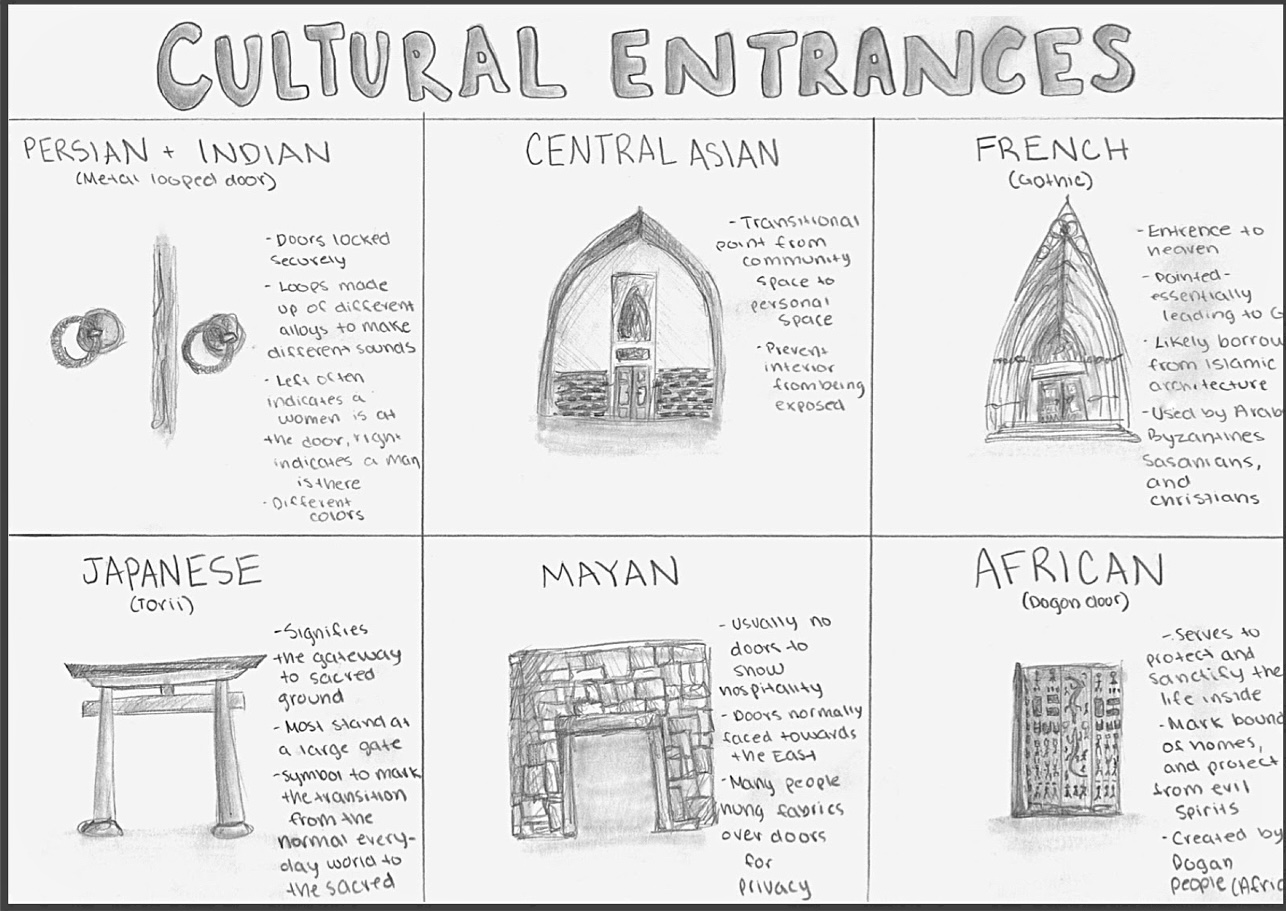 CULTURAL ENTRANCES
PERSIAN + INDIAN
(Metal looped door)
- Doors locked
securely
- Loops made
up of different
alloys to make
different sounds
- Left often
indicates a
women is at
the door, right
indicates a man
is there
- Different
colors
CENTRAL ASIAN
- Transitional
point from
community
space to
personal
space
- Prevent
interior
from being
exposed
FRENCH
(Gothic)
- Entrence to
heaven
- Pointed-
essentially
leading to G
- Likely borrow
from Islamic
architecture
- Used by Arab
Byzantines
Sasanians,
and
Christians
JAPANESE
(Torii)
- Signifies
the gateway
to sacred
ground
- Most stand at
a large gate
- symbol to mark
the transition
from the
normal every-
day world to
the sacred
MAYAN
- Usually no
doors to
show
hospitality
- Doors normally
faced towards
the East
- Many people
hung fabrics
over doors
for
privacy
AFRICAN
(Dogon door)
- Serves to
protect and
sanctify the
life inside
- Mark bound
of homes,
and protect
from evil
spirits
- Created by
Dogan
People (Afric